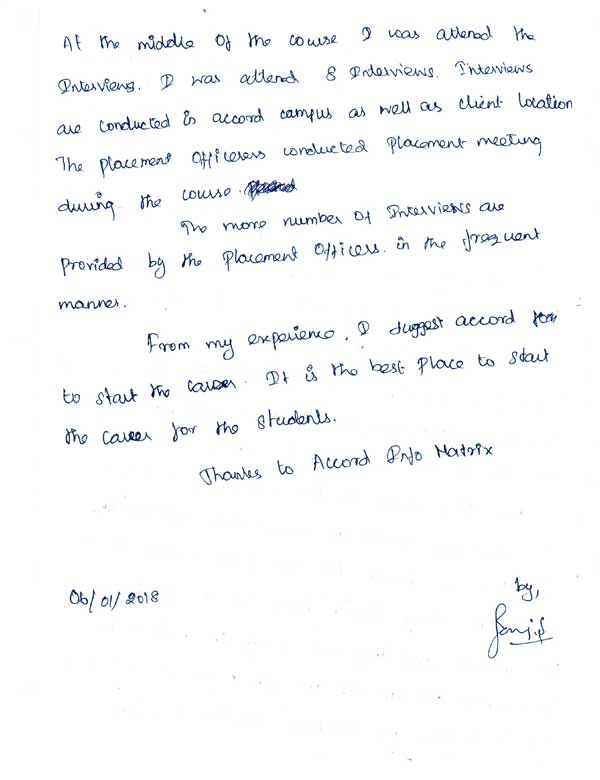 At the middle of the course I was attend the
Interviews. I was attend 8 Interviews. Interviews
are conducted in accord campus as well as client location
The placement officesers conducted placement meeting
during the course.
The more number of Interviews are
provided by the placement officers. in the frequent
manner.
From my experience, I suggest accord for
to start the career. It is the best place to start
the career for the students.
Thanks to Accord Info Matrix
06/01/2018
by,